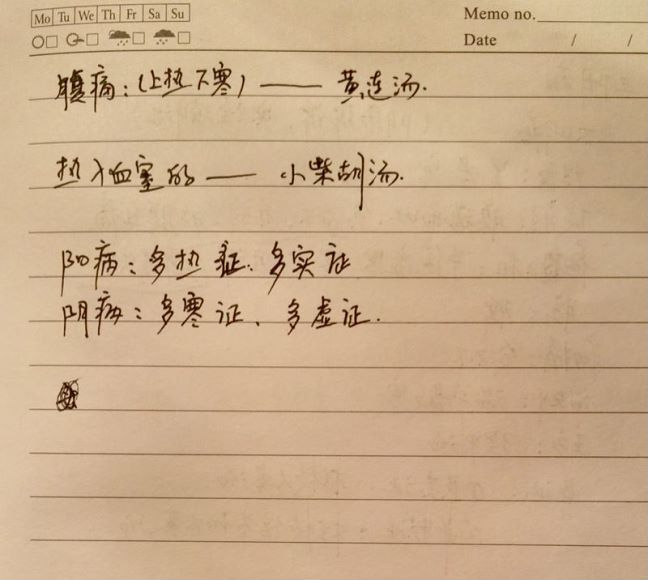 Mo Tu We Th Fr Sa Su
Memo no.
Date / /
腹痛:(上热下寒)—— 黄连汤.
热入血室的 —— 小柴胡汤.
阳病:多热症、多实证
阴病:多寒证、多虚证.